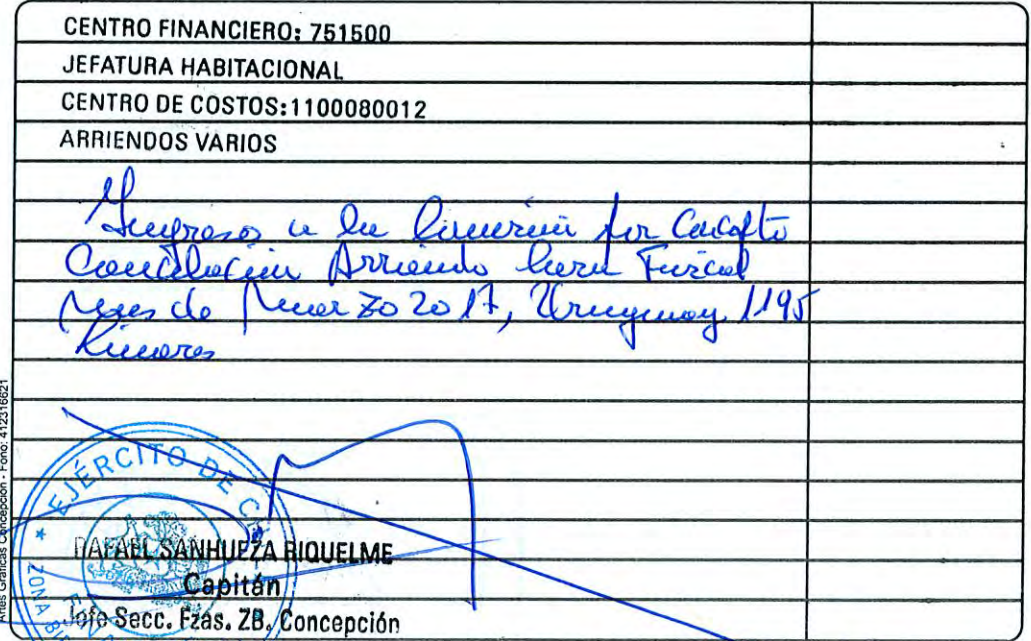 CENTRO FINANCIERO: 751500
JEFATURA HABITACIONAL
CENTRO DE COSTOS:1100080012
ARRIENDOS VARIOS
Ingresos a la por Concepto
Cancelación Arriendo Casa Fiscal
Mes de Marzo 2017, Uruguay 1195
Linares
EJÉRCITO DE
RAFAEL SANHUEZA RIQUELME
Capitán
Jefe Secc. Fzas. ZB. Concepción
ZONA
Artes Gráficas Concepción - Fono: 412316621